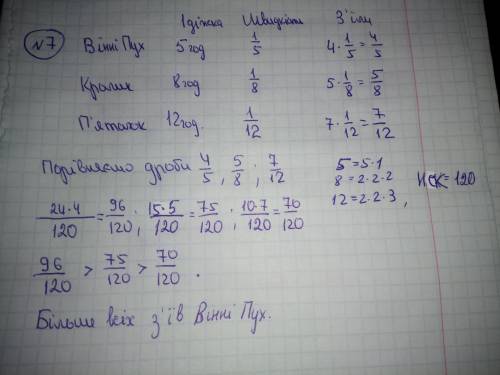 №7
1 діжка Швидкість З'їли
Вінні Пух 5 год 1/5 4·1/5=4/5
Кролик 8 год 1/8 5·1/8=5/8
П'ятачок 12 год 1/12 7·1/12=7/12
Порівняємо дроби 4/5, 5/8, 7/12
5=5·1
8=2·2·2
12=2·2·3, НСК=120
24·4/120=96/120; 15·5/120=75/120; 10·7/120=70/120
96/120 > 75/120 > 70/120.
Більше всіх з'їв Вінні Пух.